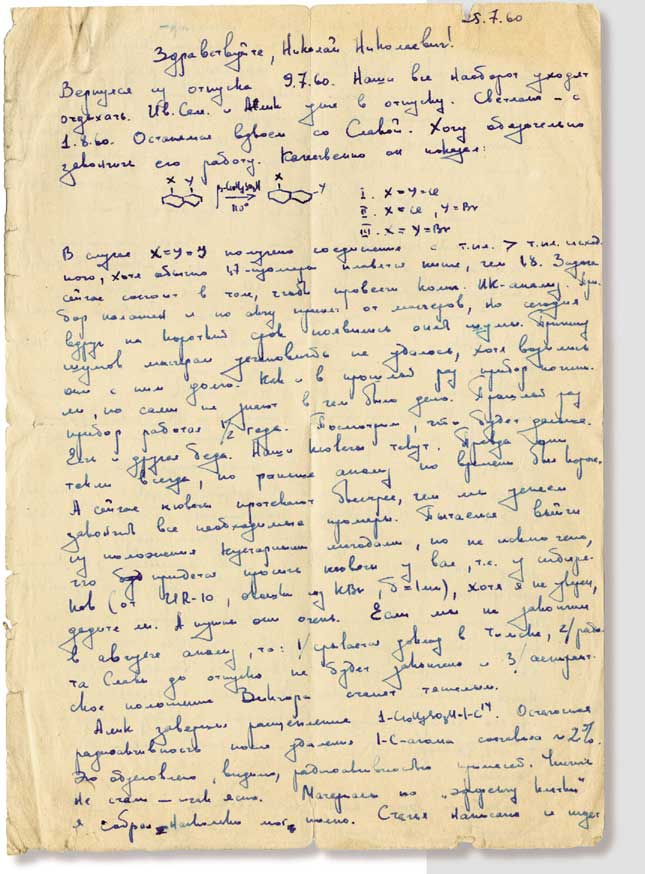 25.7.60
Здравствуйте, Николай Николаевич!
Вернулся из отпуска 9.7.60. Наши все наоборот уходят
отдыхать. Ив. Сем. и Алик уже в отпуску. Светлана – с
1.8.60. Остаемся вдвоем со Славой. Хочу обязательно
закончить его работу. Качественно он показал:
X Y β-C10H7SO3H 110° X Y
I. X=Y=Cl
II. X=Cl, Y=Br
III. X=Y=Br
В случае X=Y=Y получено соединение с т.пл. > т.пл. исход
ного, хотя обычно 1,7-изомеры плавятся ниже, чем 1,8. Задача
сейчас состоит в том, чтобы провести колич. ИК-анализ. При
бор поломан и по акту принят от мастеров, но сегодня
вдруг на короткий срок появились опять шумы. Причину
шумов мастерам установить не удалось, хотя возились
они с ним долго. Как и в прошлый раз прибор почини-
ли, но сами не знают в чем было дело. Прошлый раз
прибор работал 1/2 года. Посмотрим, что будет дальше.
Есть и другая беда. Наши кюветы текут. Правда они
текли всегда, но раньше анализ по времени был короче.
А сейчас кюветы протекают быстрее, чем мы успеем
закончить все необходимые промеры. Пытаемся выйти
из положения кустарными методами, но не исключено,
что придется просить кюветы у вас, т.е. у сибиря-
ков (от UR-10, окошки из KBr, δ=1мм), хотя я не уверен,
дадите ли. А нужны они очень. Если мы не закончим
в августе анализ, то: 1/ срывается доклад в Томске, 2/ рабо
та Славы до отпуска не будет закончена и 3/ аспирант-
ское положение Виктора станет тяжелым.
Алик завершил расщепление 1-C10H7SO3H-1-C14. Остаточная
радиоактивность после удаления 1-С-атома составила ~2%.
Это обусловлено, видимо, радиоактивностью примесей. Чистить
не стали – и так ясно. Материалы по „эффекту клетки"
я собрал насколько мог полно. Статья написана и ждет